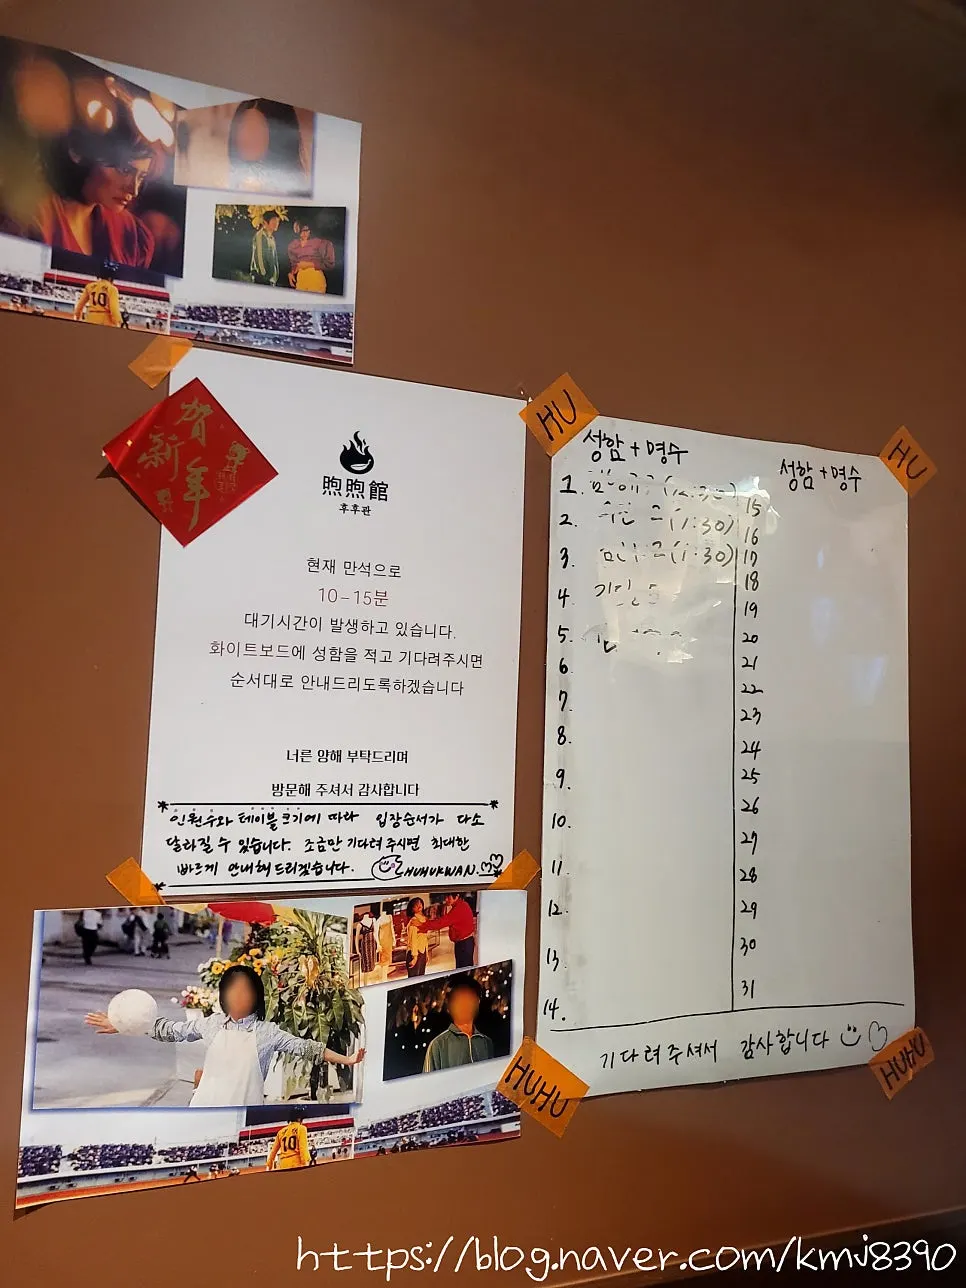 10
賀
新
年
煦煦館
후후관
현재 만석으로
10-15분
대기시간이 발생하고 있습니다.
화이트보드에 성함을 적고 기다려주시면
순서대로 안내드리도록하겠습니다
너른 양해 부탁드리며
방문해 주셔서 감사합니다
인원수와 테이블크기에 따라 입장순서가 다소
달라질 수 있습니다. 조금만 기다려주시면 최대한
빠르게 안내해드리겠습니다. HUHUKWAN.
10
HU
HU
성함+명수
1.
2. (1:30)
3. (1:30)
4.
5.
6.
7.
8.
9.
10.
11.
12.
13.
14.
성함+명수
15
16
17
18
19
20
21
22
23
24
25
26
27
28
29
30
31
기다려주셔서 감사합니다
HUHU
HUHU
https://blog.naver.com/kmj8390